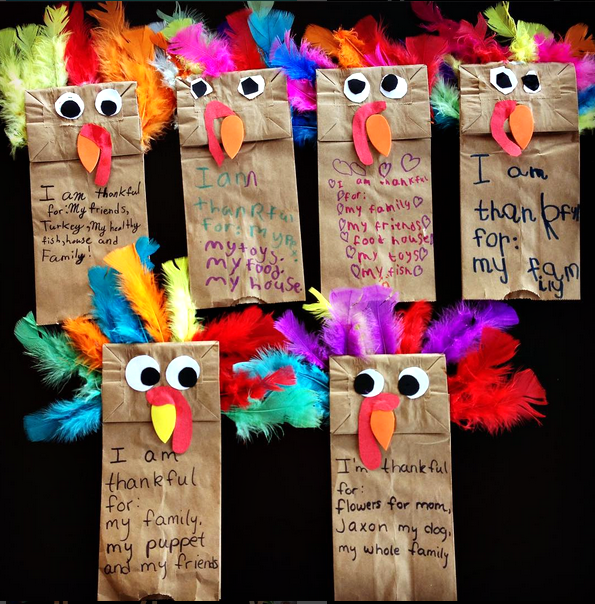 I am thankful
for: My friends,
Turkey, My healthy
fish, house and
Family!
I am
thankful
for: my
my toys.
my food.
my house.
I am thankful
for:
my family
my friends
food house
my toys
my fish
I am
thankful
for:
my family
I am
thankful
for:
my family.
my puppet
and my friends
I'm thankful
for:
flowers for mom,
Jaxon my dog,
my whole family